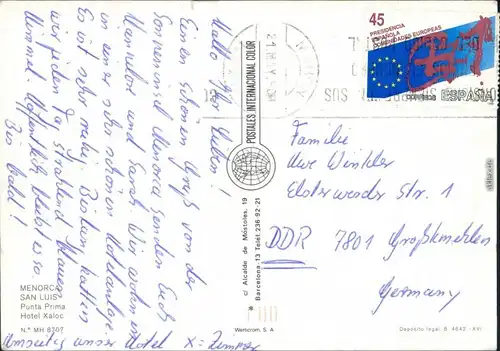 Hallo Ihr Lieben!
Einen schönen Gruß von der
Sonneninsel Menorca senden Euch
Manuelart und Sarah. Wir wohnen
in einer sehr schönen Hotelanlage
Es ist sehr ruhig. Bisher hatten
wir jeden Tag strahlend blauen
Himmel. Hoffentlich bleibt es so
Bis bald!
MENORCA
SAN LUIS
Punta Prima
Hotel Xaloc
N.º MH 6307
Umseitig unser Hotel X = Zimmer
POSTALES INTERNACIONAL COLOR
c/ Alcalde de Móstoles, 19
Barcelona-13 Telèf. 236-92-21
Wertcrom, S. A
45
PRESIDENCIA
ESPAÑOLA
COMUNIDADES EUROPEAS
CORREOS ESPAÑA
Familie
Uwe Winkler
Elsterwerder Str. 1
DDR 7801 Großkmehlen
Germany
Depósito legal B. 4642 - XXI